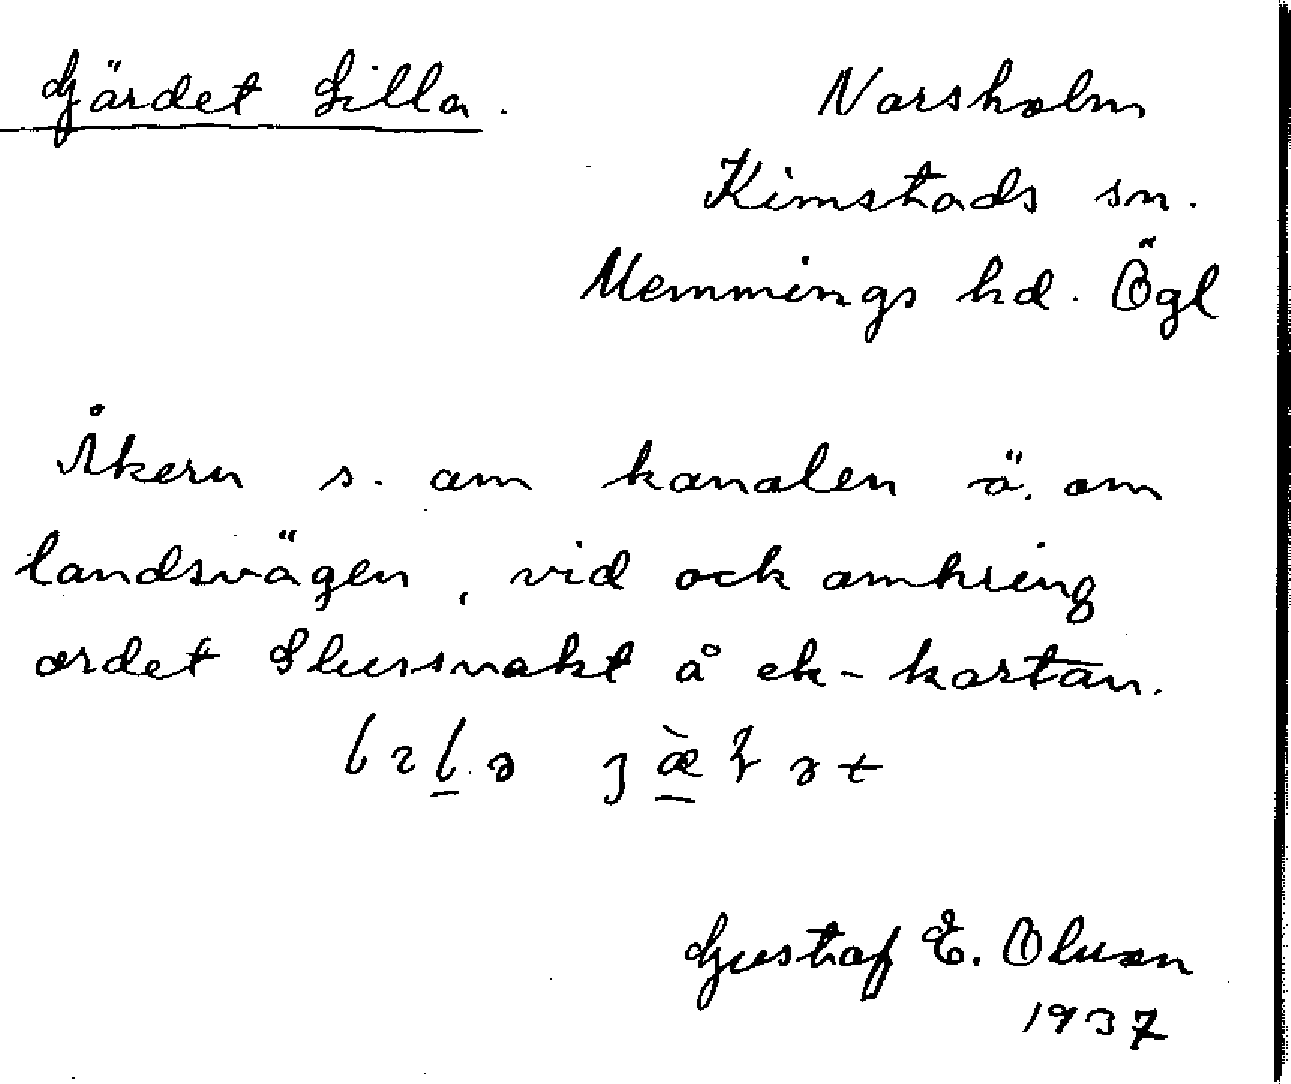 Gärdet Lilla.
Norsholm
Kimstads sn.
Memmings hd. Ögl
Åkern s. om kanalen ö. om
landsvägen, vid och omkring
ordet Slussvakt å ek-kartan.
Gustaf E. Olson
1937